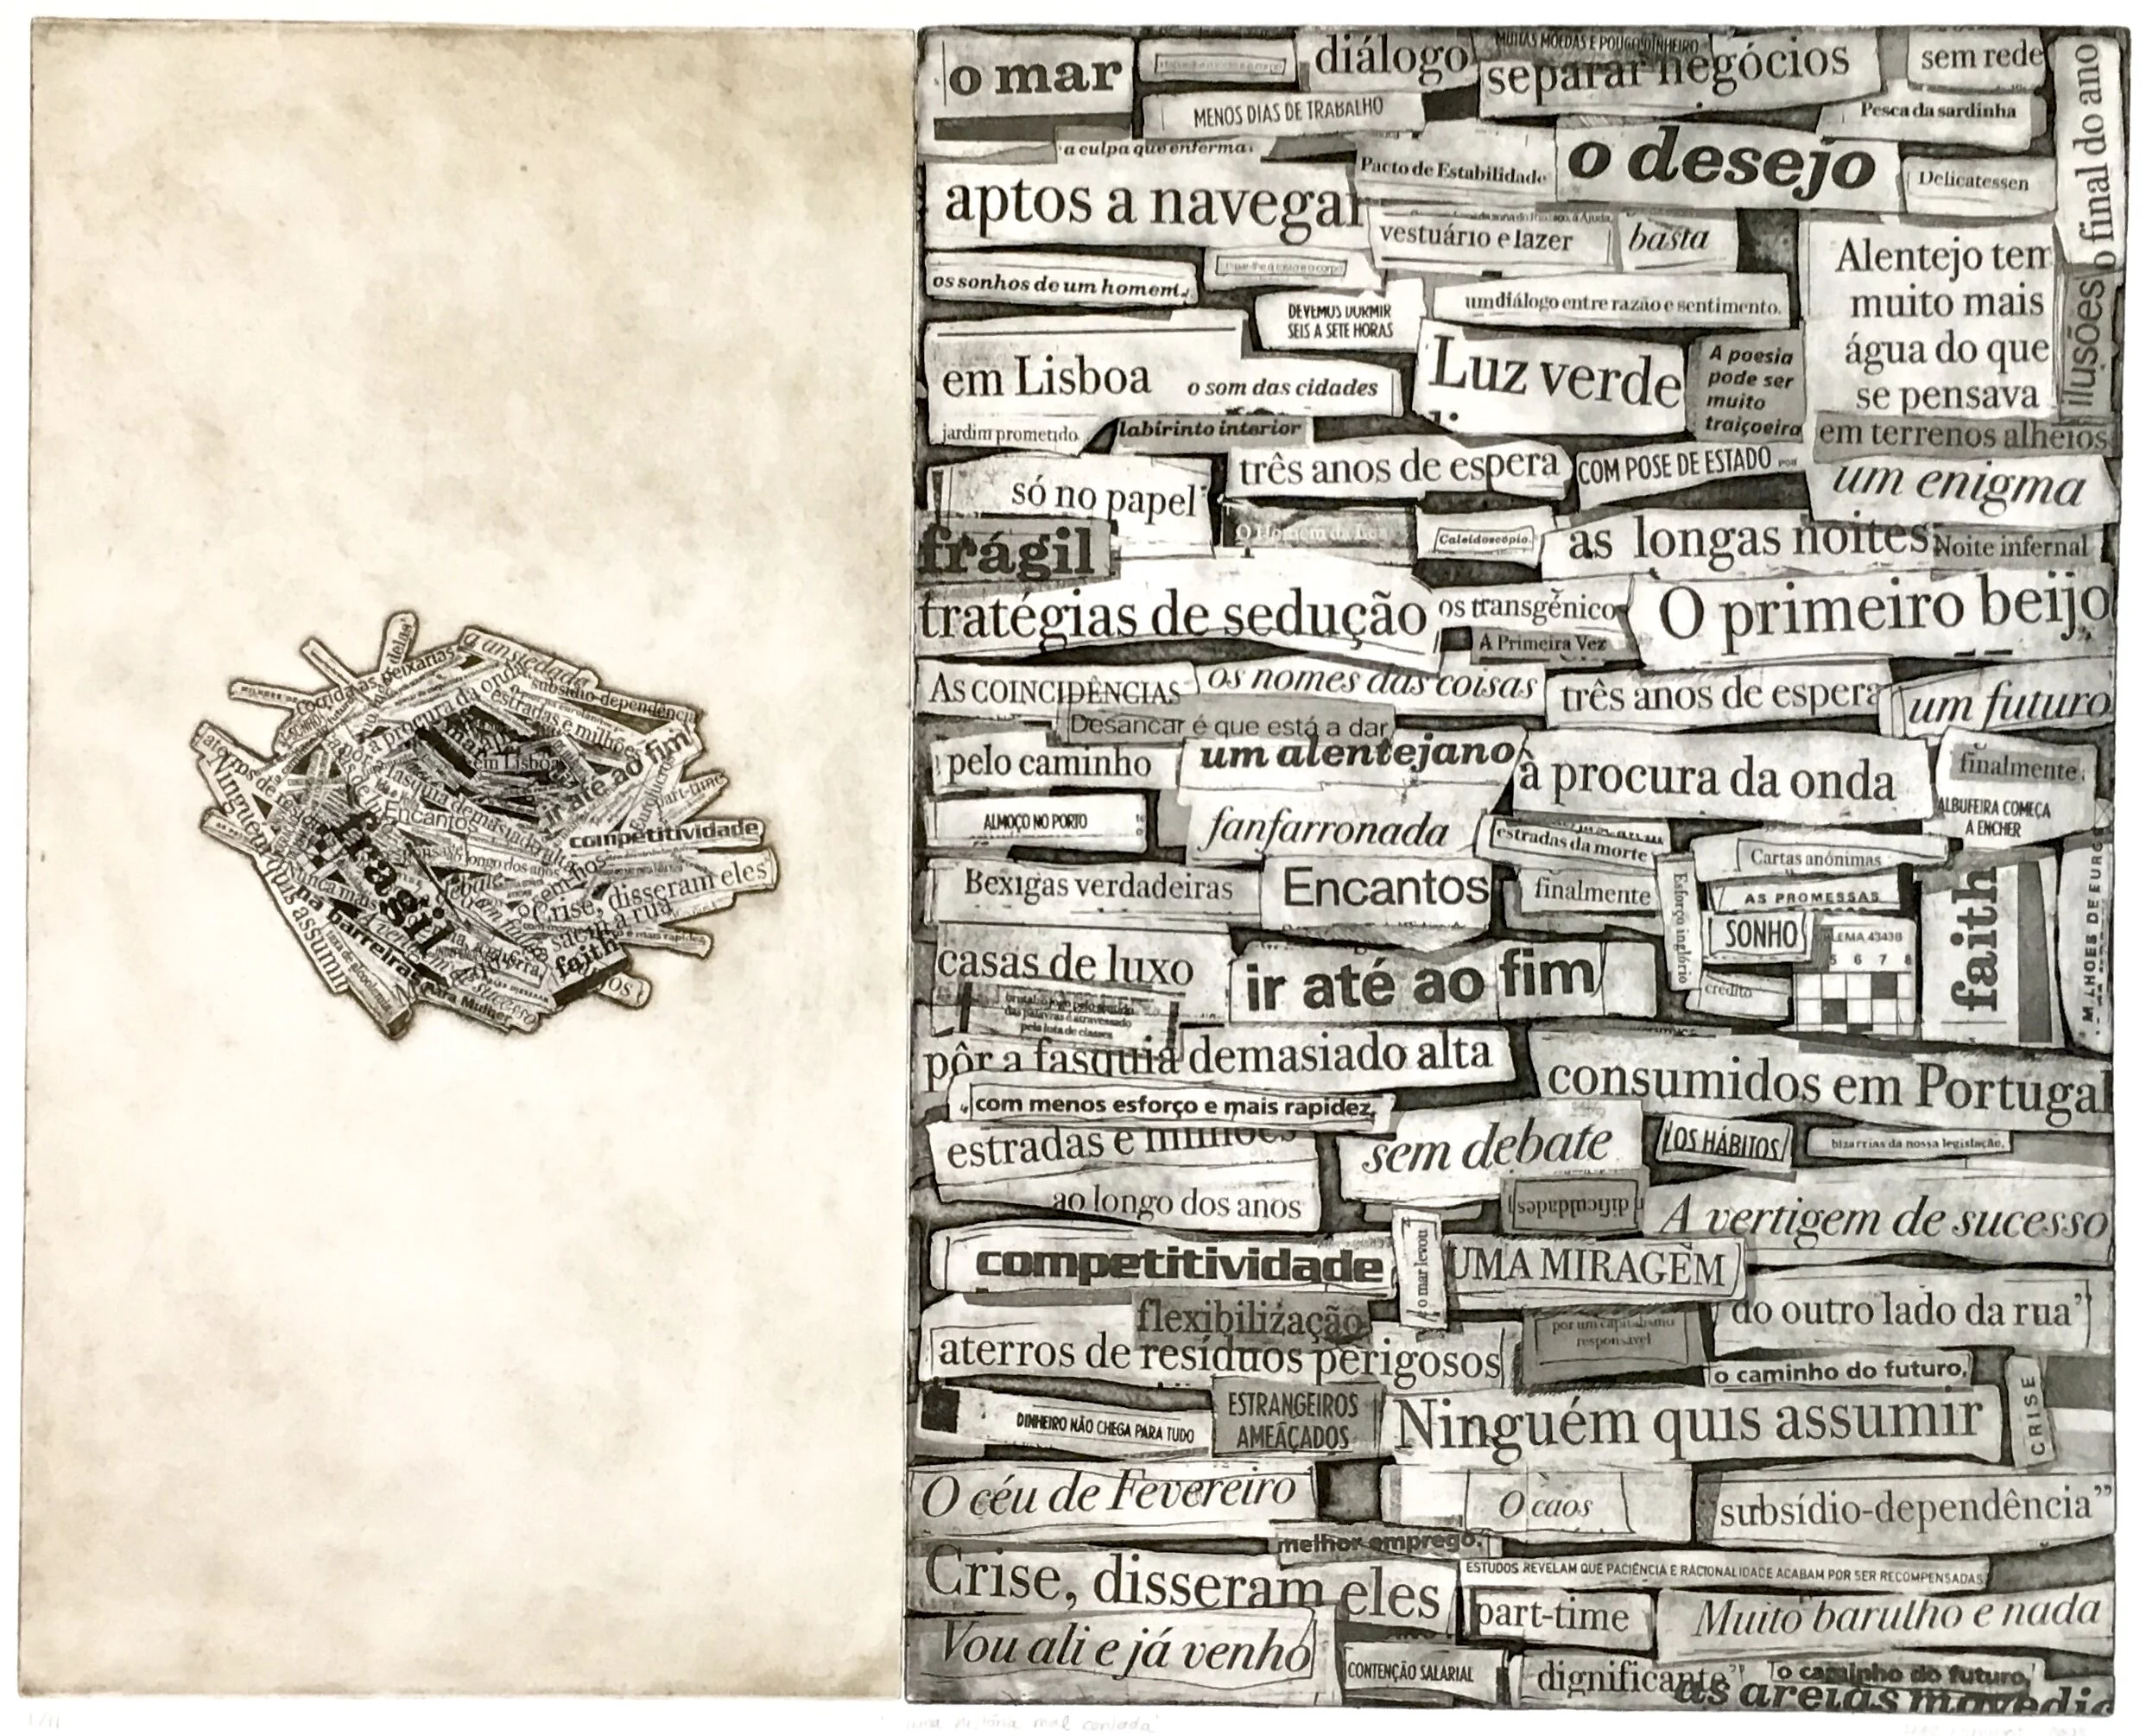 a ansiedade
subsídio-dependência
à procura da onda
estradas e milhões
em Lisboa
ir até ao fim
part-time
Encantos
competitividade
longo dos anos
frágil
Crise, disseram eles
Ninguém quis assumir
nunca mais
barreiras
a rua
e mais rapidez
faith
para Mulher
sucesso
o mar
diálogo
MUITAS MOEDAS E POUCO DINHEIRO
separar negócios
sem rede
o final do ano
MENOS DIAS DE TRABALHO
Pesca da sardinha
a culpa que enferma
Pacto de Estabilidade
o desejo
Delicatessen
aptos a navegar
vestuário e lazer
basta
Alentejo tem
muito mais
água do que
se pensava
ilusões
os sonhos de um homem
DEVEMOS DORMIR
SEIS A SETE HORAS
um diálogo entre razão e sentimento.
em Lisboa
o som das cidades
Luz verde
A poesia
pode ser
muito
traiçoeira
jardim prometido
labirinto interior
em terrenos alheios
três anos de espera
COM POSE DE ESTADO
um enigma
só no papel
frágil
O Homem da Lua
Caleidoscópio.
as longas noites
Noite infernal
tratégias de sedução
os transgénico
A Primeira Vez
O primeiro beijo
AS COINCIDÊNCIAS
os nomes das coisas
três anos de espera
um futuro
Desancar é que está a dar
pelo caminho
um alentejano
à procura da onda
finalmente
ALBUFEIRA COMEÇA
A ENCHER
ALMOÇO NO PORTO
fanfarronada
estradas da morte
Cartas anónimas
Bexigas verdadeiras
Encantos
finalmente
Esforço inglório
AS PROMESSAS
SONHO
LEMA 43438
5 6 7 8
faith
MILHOES DE EURO
casas de luxo
ir até ao fim
crédito
das palavras é atravessado
pela luta de classes
pôr a fasquia demasiado alta
consumidos em Portugal
com menos esforço e mais rapidez,
estradas e milhões
sem debate
LOS HÁBITOS
bizarrias da nossa legislação,
ao longo dos anos
dificuldades
A vertigem de sucesso
competitividade
o mar levou
UMA MIRAGEM
flexibilização
do outro lado da rua”
aterros de resíduos perigosos
por um capitalismo
responsável
o caminho do futuro,
DINHEIRO NÃO CHEGA PARA TUDO
ESTRANGEIROS
AMEAÇADOS
Ninguém quis assumir
CRISE
O céu de Fevereiro
O caos
subsídio-dependência”
melhor emprego.
Crise, disseram eles
ESTUDOS REVELAM QUE PACIÊNCIA E RACIONALIDADE ACABAM POR SER RECOMPENSADAS
part-time
Muito barulho e nada
Vou ali e já venho
CONTENÇÃO SALARIAL
dignificante”
o caminho do futuro,
as areias movediç
1/11
uma história mal contada